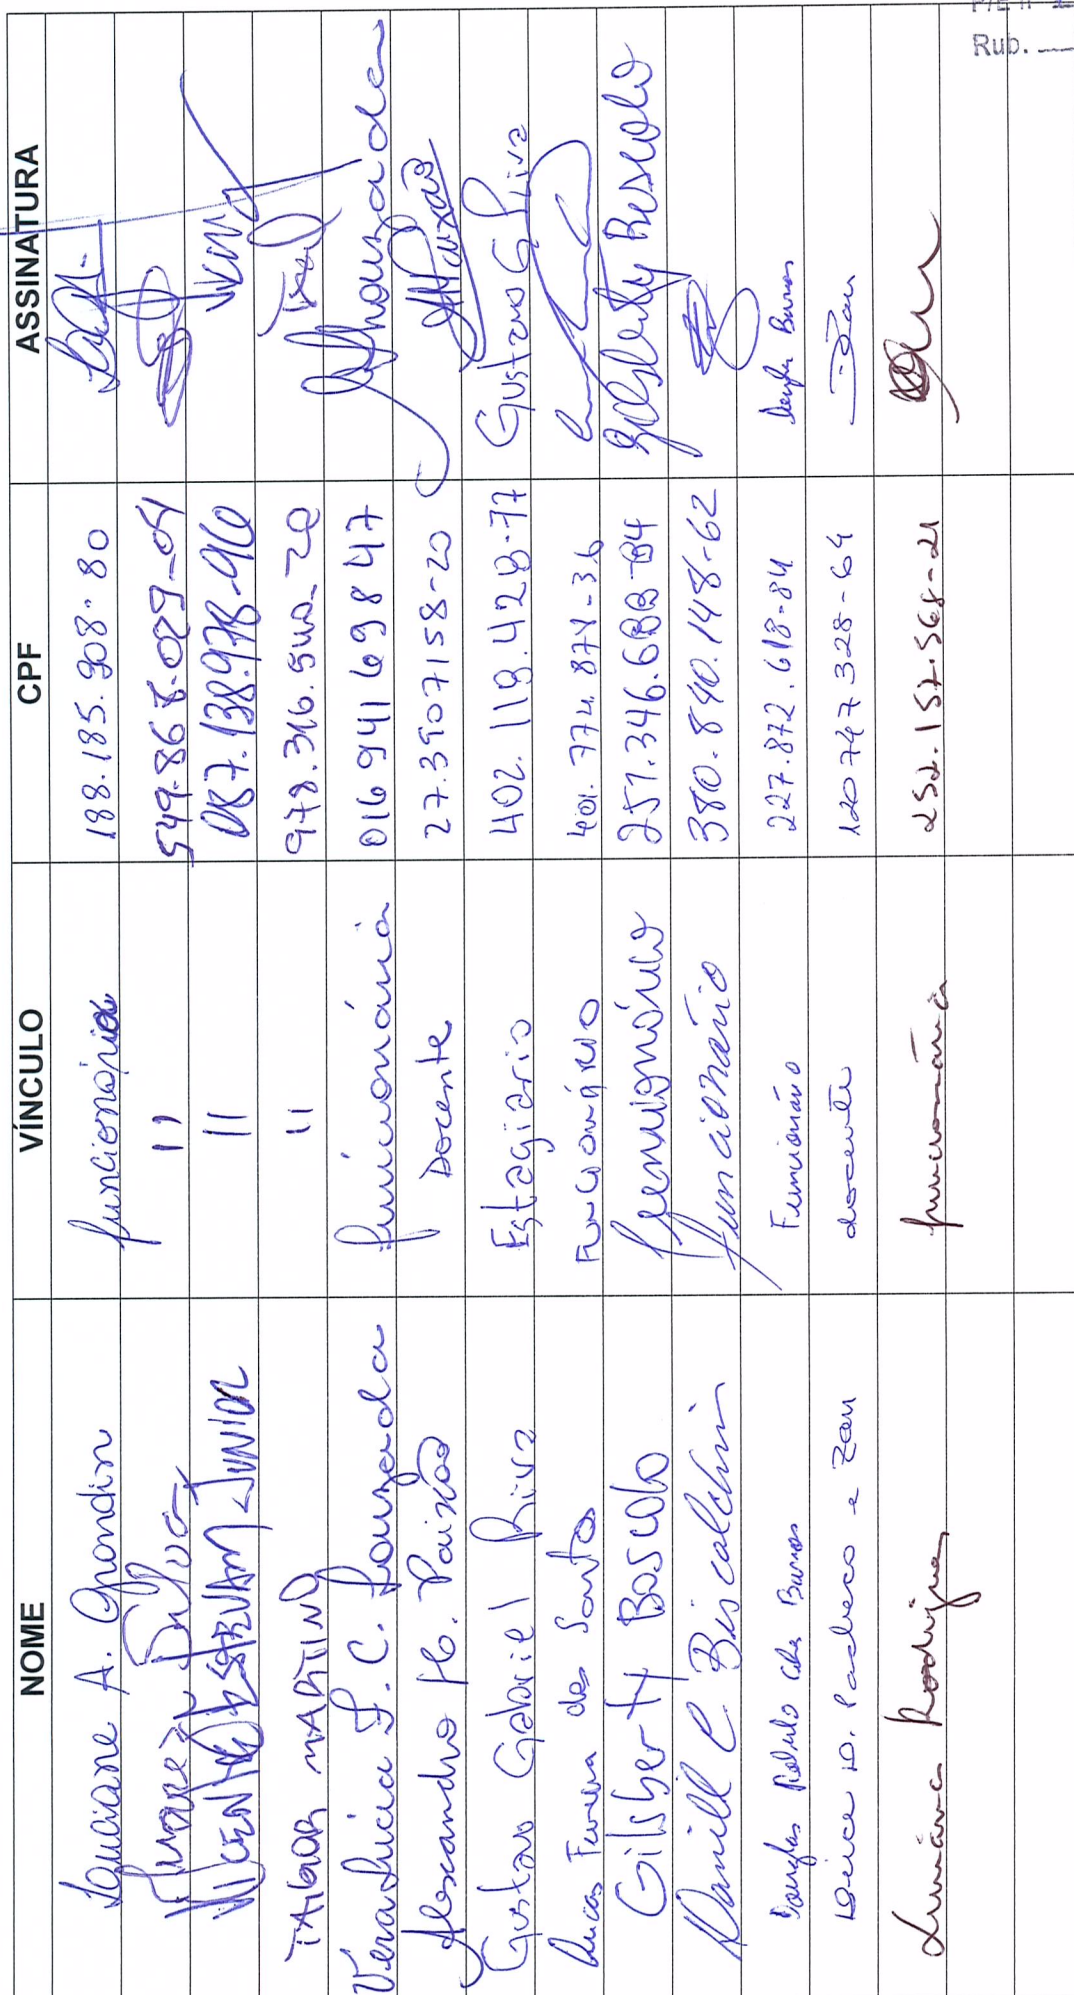 NOME VÍNCULO CPF ASSINATURA
Luciane A. Grondin funcionária 188.185.908-80
Silva " 549.867.029-04
Vicente Estevam Junior " 087.138.978-96
TAIGOR MARTINO " 978.316.540-20
Vera Lucia F. C. Louzada funcionária 016 941 698 47 Louzada
Alexandre H. Paixão Docente 27.3907158-20 Paixão
Gustavo Gabriel Riva Estagiario 402.119.428-77 Gustavo G Riva
Lucas Ferreira dos Santos Funcionário 401.774.871-36
Gilsberty Boscolo funcionário 257.346.688-84 Gilsberty Boscolo
Danill C. Biscalchin funcionário 380.840.148-62
Douglas Barros Funcionário 227.872.618-84 Douglas Barros
D. Pacheco e Zan docente 120747328-64 Zan
Luciana Rodrigues funcionária 252.157.568-21
Rub.